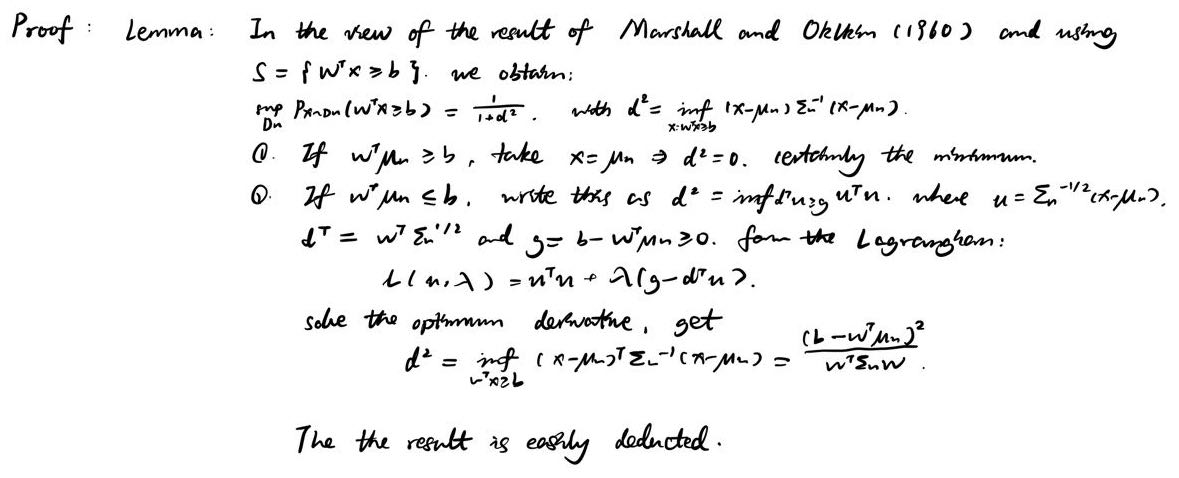 Proof: Lemma: In the view of the result of Marshall and Olkin (1960) and using
S = {wᵀx ≥ b}. we obtain:
sup_{Dn} P_{x~Dn}(wᵀx ≥ b) = 1/(1+d²). with d² = inf_{x:wᵀx≥b} (x-μn) Σn⁻¹ (x-μn).
①. If wᵀμn ≥ b, take x = μn ⇒ d² = 0. certainly the minimum.
②. If wᵀμn ≤ b, write this as d² = inf_{dᵀu≥g} uᵀu. where u = Σn^{-1/2}(x-μn).
dᵀ = wᵀΣn^{1/2} and g = b - wᵀμn ≥ 0. form the Lagrangham:
L(u,λ) = uᵀu + λ(g-dᵀu).
solve the optimum derivative, get
d² = inf_{wᵀx≥b} (x-μn)ᵀΣn⁻¹(x-μn) = (b-wᵀμn)²/(wᵀΣnw).
The the result is easily deducted.